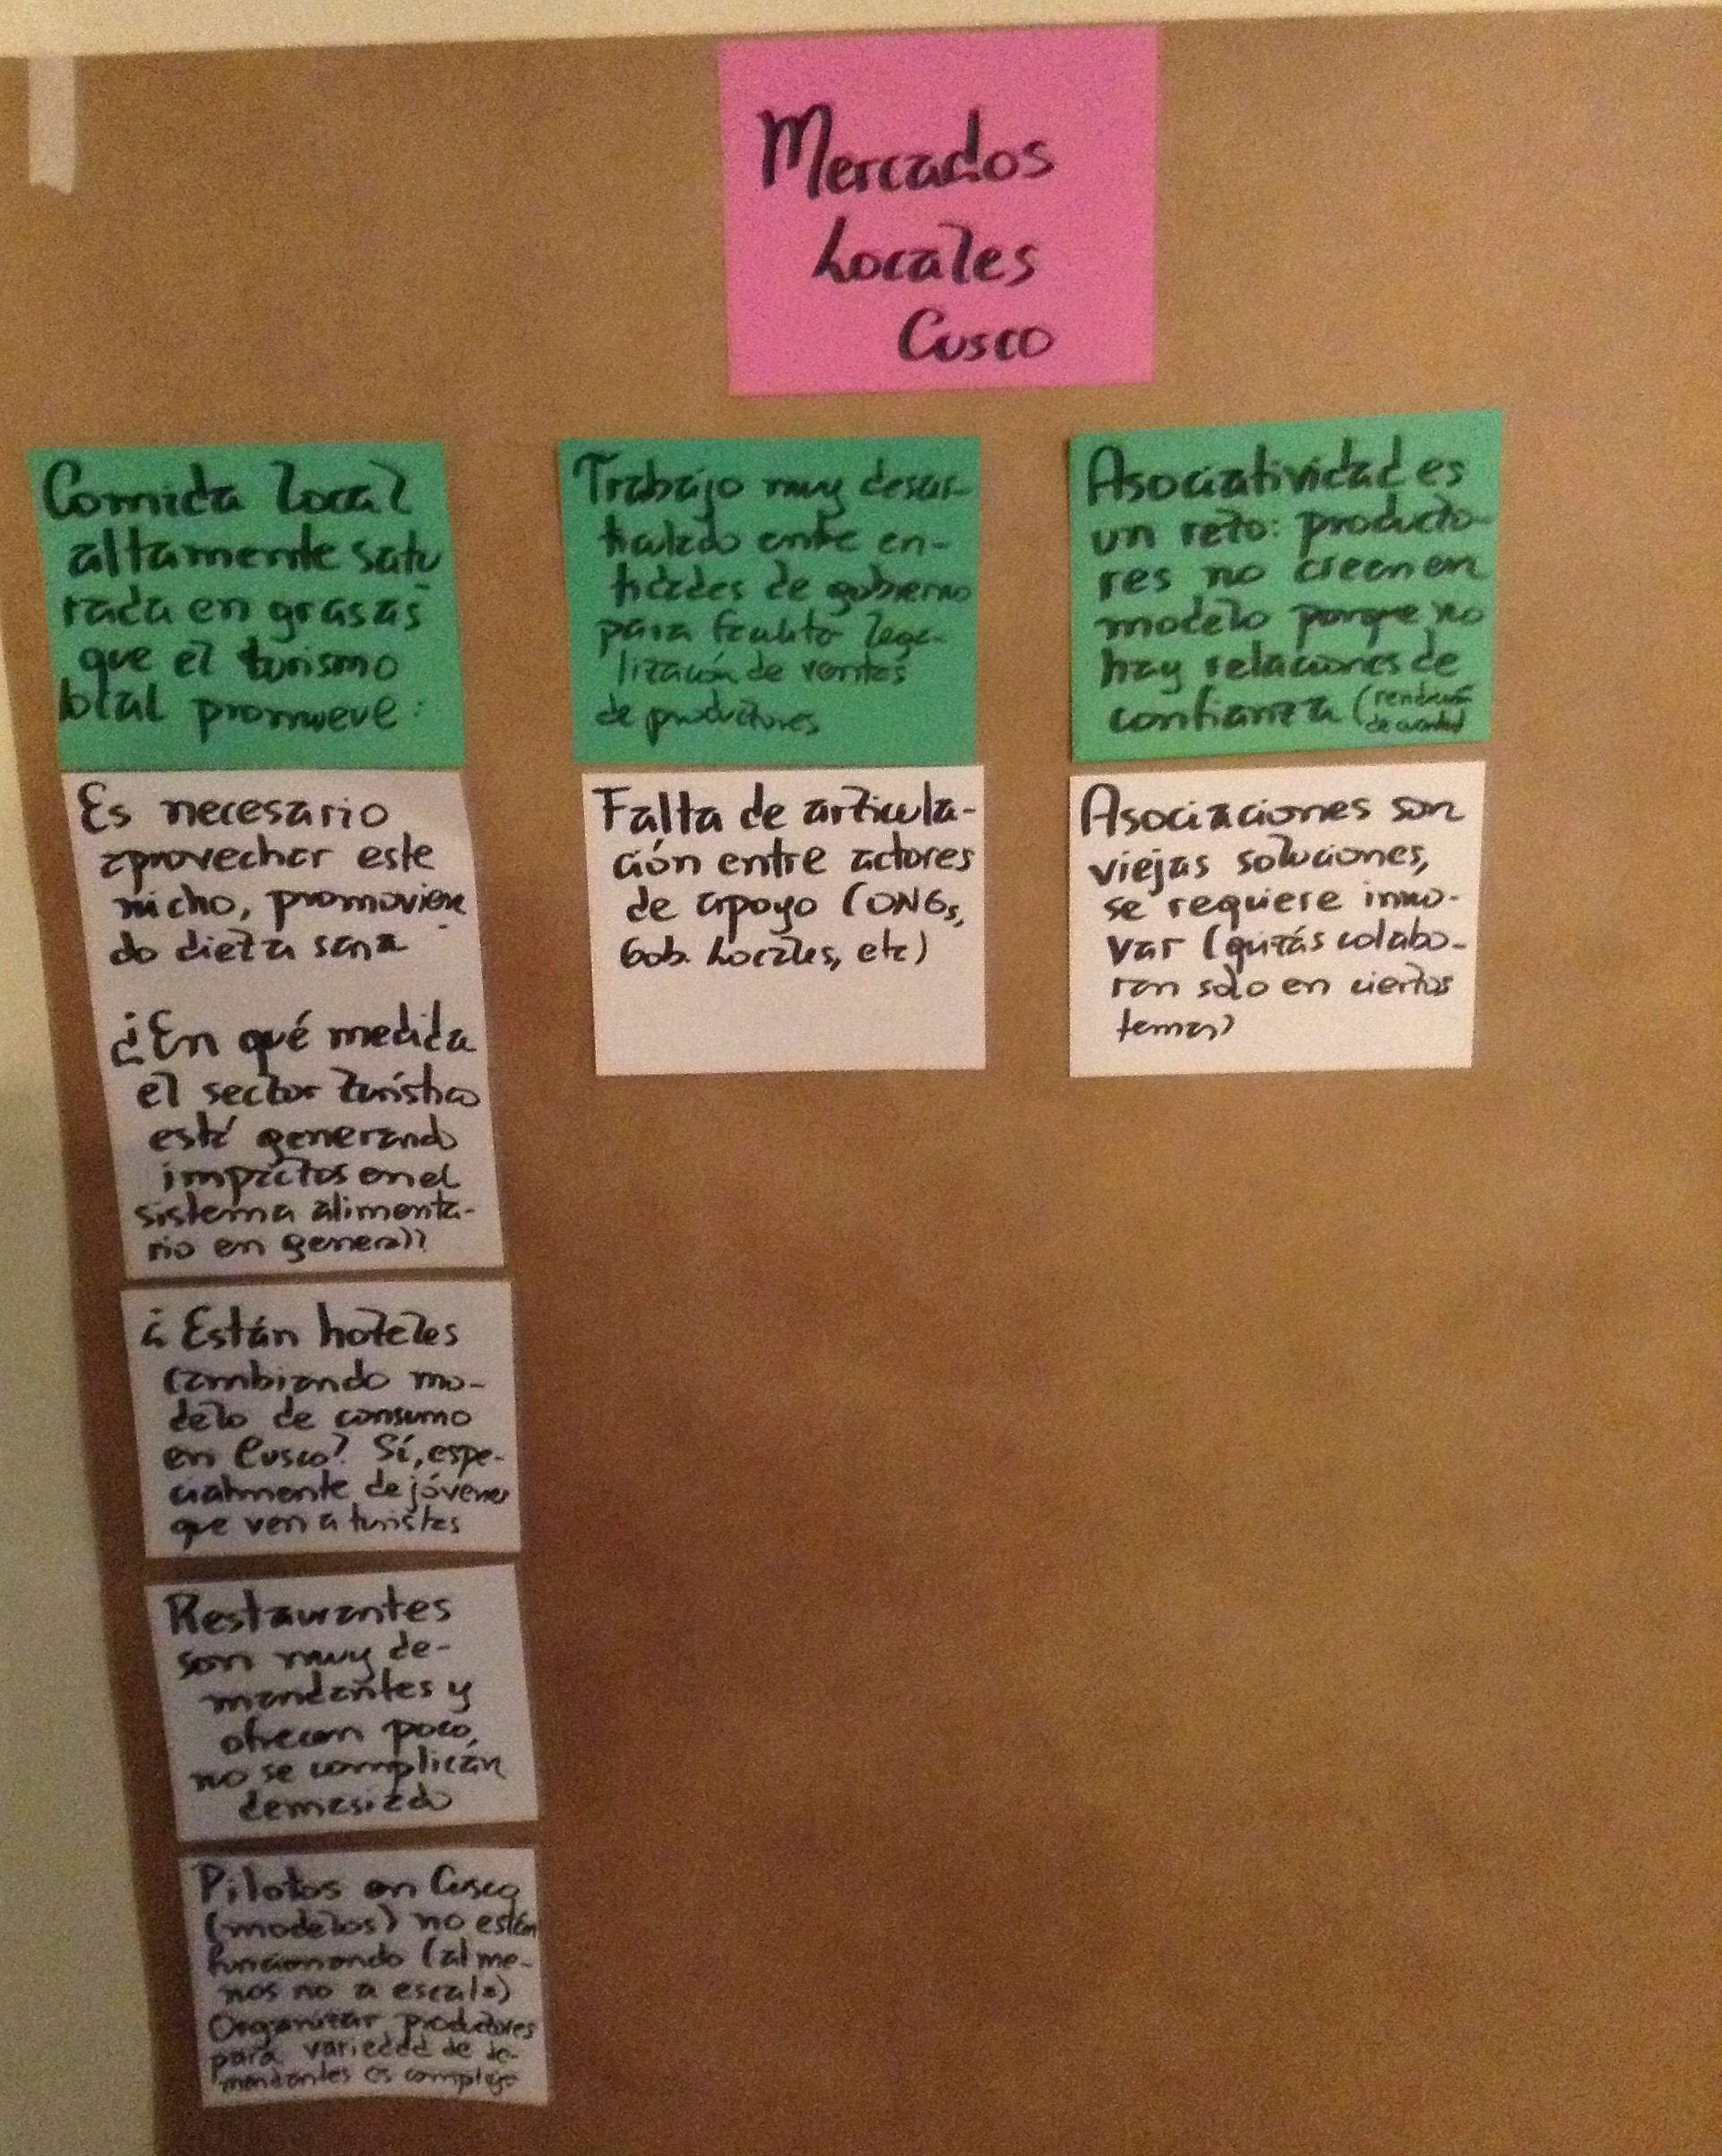 Mercados
Locales
Cusco
Comida local
altamente satu
rada en grasas
que el turismo
local promueve:
Es necesario
aprovechar este
nicho, promovien
do dieta sana
¿En qué medida
el sector turístico
esté generando
impactos en el
sistema alimenta-
rio en general?
¿Están hoteles
cambiando mo-
delo de consumo
en Cusco? Sí, espe-
cialmente de jóvenes
que ven a turistas
Restaurantes
son muy de-
mandantes y
ofrecen poco,
no se complican
demasiado
Pilotos en Cusco
(modelos) no están
funcionando (al me-
nos no a escala)
Organizar productores
para variedad de de-
mandantes es complejo
Trabajo muy desar-
ticulado entre en-
tidades de gobierno
para lega-
lización de ventas
de productores
Falta de articula-
ción entre actores
de apoyo (ONGs,
Gob. Locales, etc)
Asociatividad es
un reto: producto-
res no creen en
modelo porque no
hay relaciones de
confianza (rendición
de cuentas
Asociaciones son
viejas soluciones,
se requiere inno-
var (quizás colabo-
ran solo en ciertos
temas)